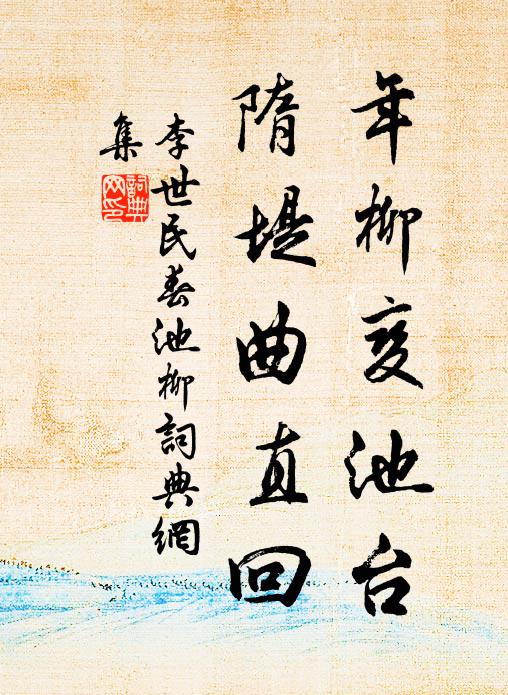 年柳变池台
隋堤曲直回
李世民春池柳詞典網
集
詞典網印